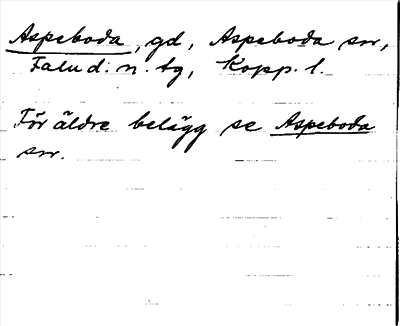 Aspeboda, gd, Aspeboda sn,
Falu d. n. tg, Kopp. l.
För äldre belägg se Aspeboda
sn.